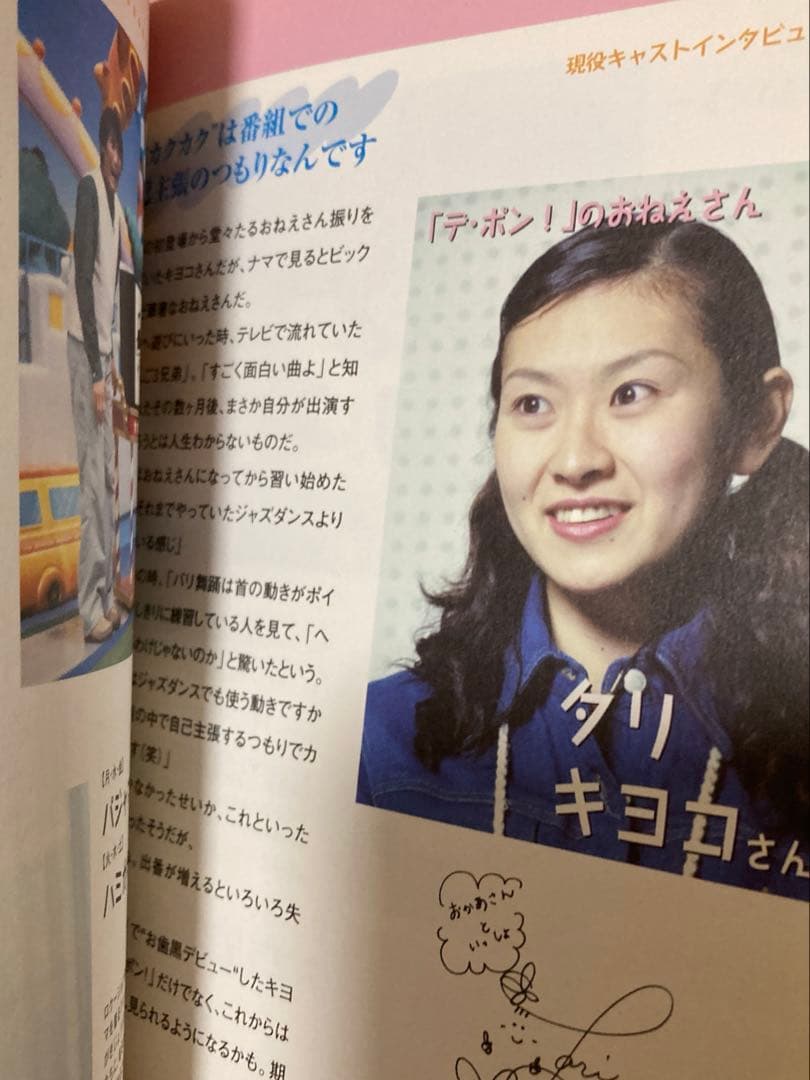 現役キャストインタビュ
カクカク"は番組での
主張のつもりなんです
登場から堂々たるおねえさん振りを
いたキヨコさんだが、ナマで見るとビック
なおねえさんだ。
遊びにいった時、テレビで流れていた
兄弟」。「すごく面白い曲よ」と知
たその数ヶ月後、まさか自分が出演す
うとは人生わからないものだ。
おねえさんになってから習い始めた
それまでやっていたジャズダンスより
いる感じ」
の時、「バリ舞踊は首の動きがポイ
しきりに練習している人を見て、「へ
わけじゃないのか」と驚いたという。
はジャズダンスでも使う動きですか
の中で自己主張するつもりでカ
す(笑)」
なかったせいか、これといった
ったそうだが、
。出番が増えるといろいろ失
で"お歯黒デビュー"したキヨ
ポン!」だけでなく、これからは
見られるようになるかも。期
「デ・ポン!」のおねえさん
ダリ
キヨコさん
おかあさん
と
いっしょ
【月・水・金】
パジャ
ハミ